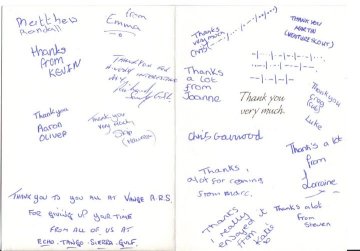 Matthew
Randall
from
Emma
Thanks
from
KEVIN
Thank you for
a very interesting
day
Thankyou
Aaron
OLIVER
Thankyou
very much
THANK YOU TO YOU ALL AT VANGE A.R.S.
FOR GIVING UP YOUR TIME
FROM ALL OF US AT
ECHO-TANGO-SIERRA-GULF.
Thanks
very much
THANK YOU
MARTIN
(VENTURE SCOUT)
Thanks
a lot
from
Joanne
Thank you
very much.
Thankyou
Luke
Chris Garwood
Thank's
a lot
from
Lorraine
Thanks,
a lot for coming
from marc.
Thanks
really
enjoyed it
from
Katie
Thanks a lot
From
Steven